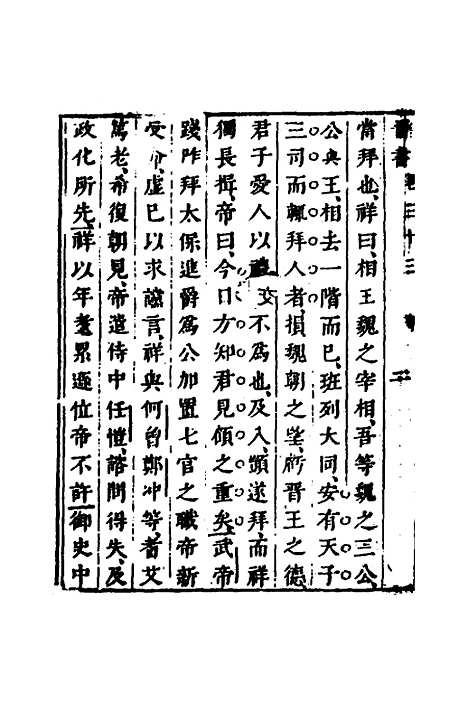 晉書
當拜也、祥曰、相王魏之宰相、吾等魏之三公、
公與王、相去一階而已、班列大同、安有天子
三司而輒拜人者、損魏朝之望、虧晉王之德、
君子愛人以禮、吾不爲也、及入、顗遂拜、而祥
獨長揖、帝曰、今日方知君見傾之重矣、武帝
踐阼拜太保進爵爲公加置七官之職帝新
受命虛已以求讜言、祥與何曾鄭冲等耆艾
篤老、希復朝見、帝遣侍中任愷、諮問得失、及
政化所先、祥以年耄累遜位帝不許御史中